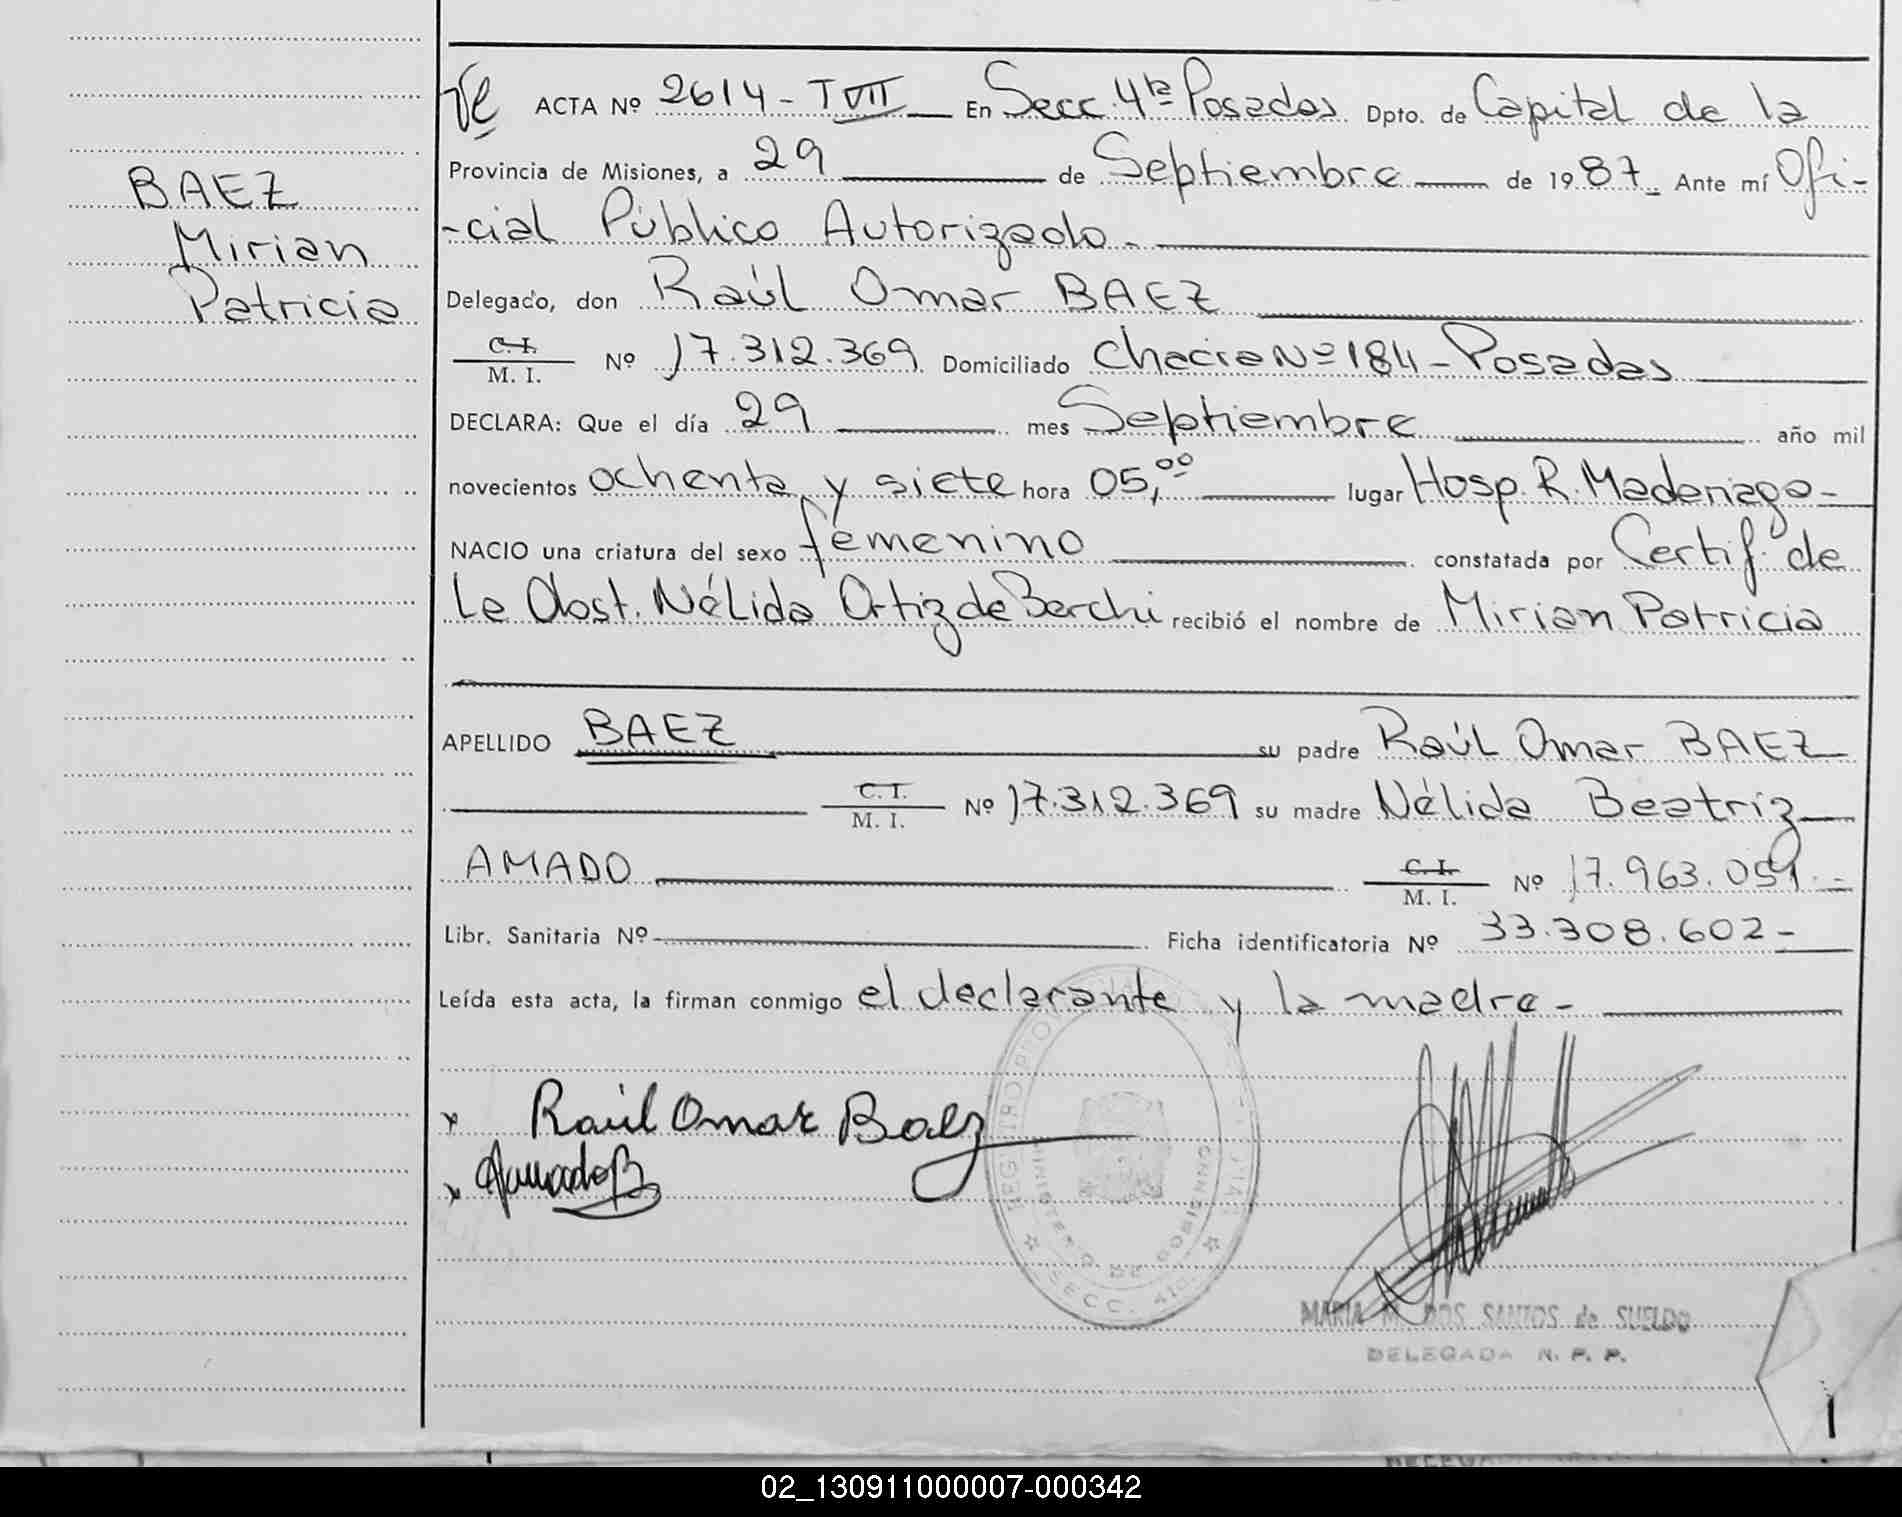 BAEZ
Mirian
Patricia
ACTA Nº 2614 - T VII En Secc. 4ta Posadas Dpto. de Capital de la
Provincia de Misiones, a 29 de Septiembre de 1987. Ante mí Ofi-
-cial Público Autorizado.
Delegado, don Raúl Omar BAEZ
C. I.
M. I. Nº 17.312.369 Domiciliado Chacra Nº 184 - Posadas
DECLARA: Que el día 29 mes Septiembre año mil
novecientos ochenta y siete hora 05,00 lugar Hosp. R. Madariaga-
NACIO una criatura del sexo femenino constatada por Certif. de
la Obst. Nélida Ortiz de Berchi recibió el nombre de Mirian Patricia
APELLIDO BAEZ su padre Raúl Omar BAEZ
C. I.
M. I. Nº 17.312.369 su madre Nélida Beatríz
AMADO C. I.
M. I. Nº 17.963.059.-
Libr. Sanitaria Nº Ficha identificatoria Nº 33.308.602-
Leída esta acta, la firman conmigo el declarante y la madre-
x Raúl Omar Baez
x Amado B
MARIA M. DOS SANTOS de SUELDO
DELEGADA N. P. P.
02_130911000007-000342